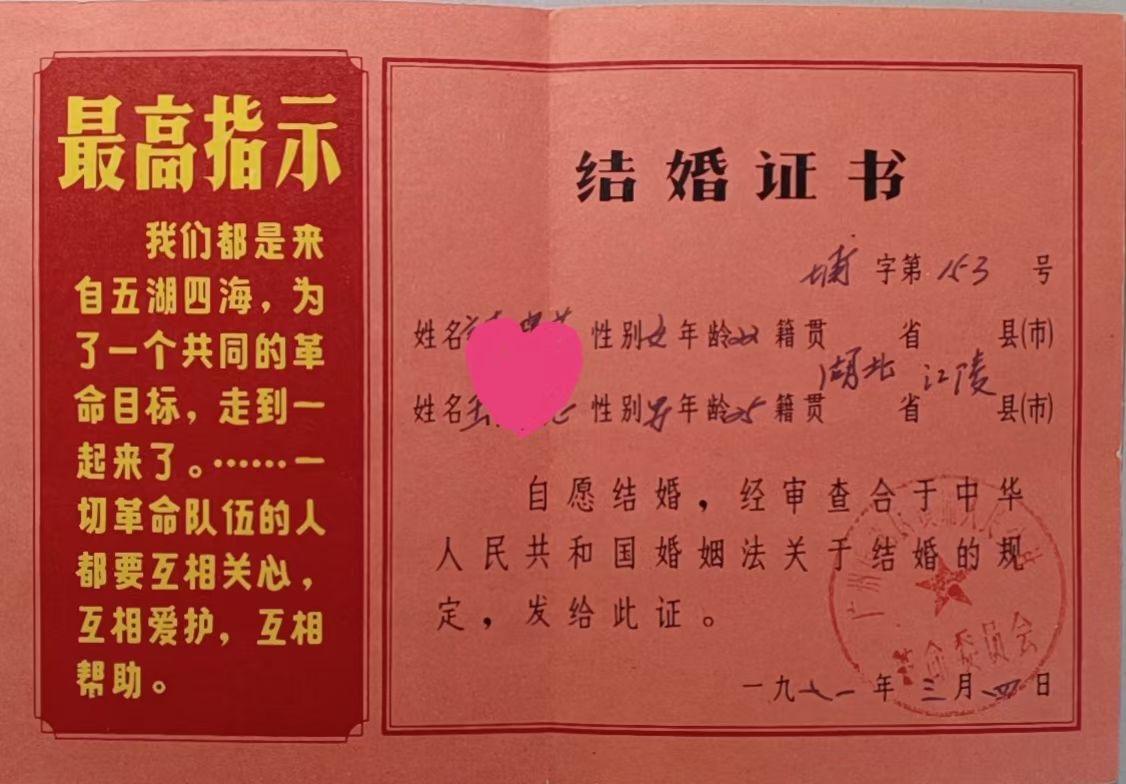 最高指示
我们都是来
自五湖四海，为
了一个共同的革
命目标，走到一
起来了。……一
切革命队伍的人
都要互相关心，
互相爱护，互相
帮助。
结婚证书
埔字第153号
姓名 性别女年龄22籍贯 省 县(市)
湖北 江陵
姓名 性别男年龄25籍贯 省 县(市)
自愿结婚，经审查合于中华
人民共和国婚姻法关于结婚的规
定，发给此证。
广州市
革命委员会
一九七一年三月 日